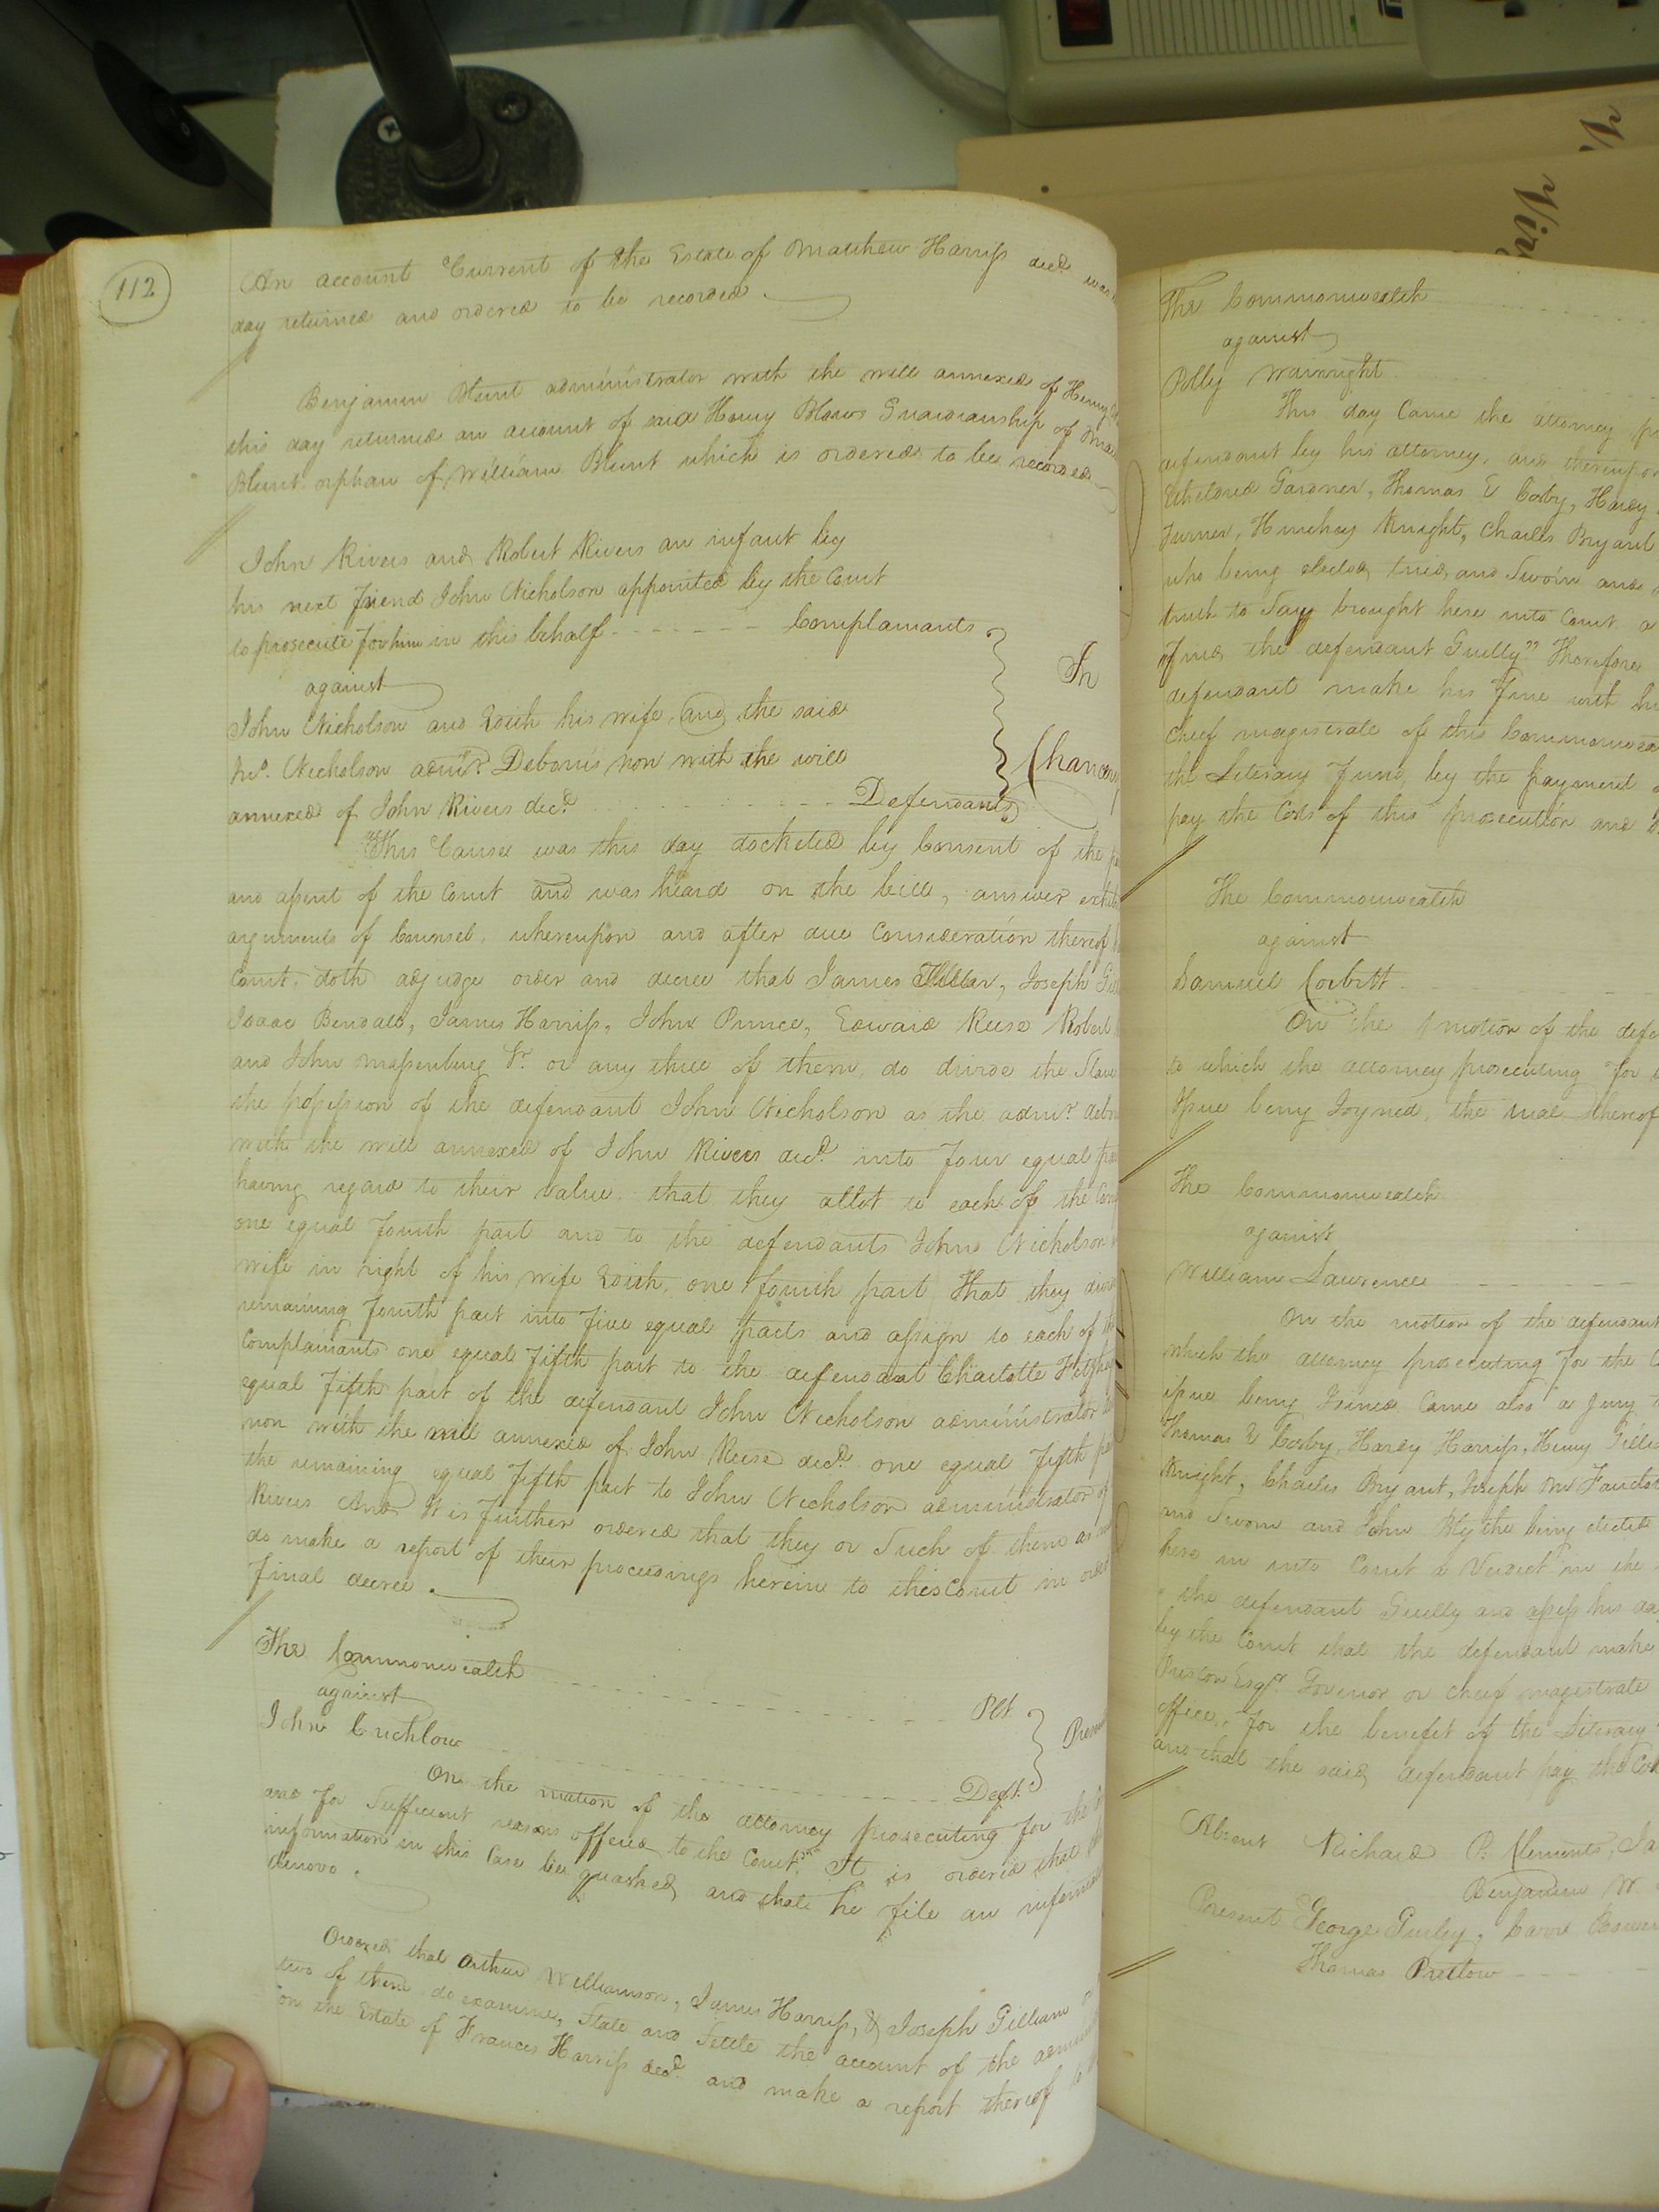 112
An account Current of the Estate of Matthew Harriss decd. was
day returned and ordered to be recorded
Benjamin Blunt administrator with the will annexed of Henry
this day returned an account of said Henry Blows Guardianship of
Blunt orphan of William Blunt which is ordered to be recorded
John Rivers and Robert Rivers an infant by
his next friend John Nicholson appointed by the Court
to prosecute for him in this behalf Complainants
In
against
John Nicholson and Edith his wife, and the said
Jno. Nicholson admr. Debonis non with the will
Chancery
annexed of John Rivers decd. Defendants
This Cause was this day docketed by Consent of the
and assent of the Court and was heard on the bill, answer
arguments of Counsel, whereupon and after due Consideration thereof
Court, doth adjudge order and decree that James Millar, Joseph
Isaac Bendall, James Harriss, John Prince, Edward Reese Robert
and John Massenburg Sr. or any three of them, do divide the Slaves
the possession of the defendant John Nicholson as the admr.
with the will annexed of John Rivers decd. into four equal
having regard to their value, that they allot to each of the
one equal fourth part and to the defendants John Nicholson
wife in right of his wife Edith, one fourth part That they
remaining fourth part into five equal parts and assign to each of
Complainants one equal fifth part to the defendant Charlotte
equal fifth part of the defendant John Nicholson administrator
non with the will annexed of John Reese decd. one equal fifth
the remaining equal fifth part to John Nicholson administrator of
Rivers And It is further ordered that they or Such of them as
do make a report of their proceedings herein to this Court in
final decree.
The Commonwealth Plt
against
John Crichlow Deft.
On the motion of the attorney prosecuting for the
and for Sufficient reasons offered to the Court, It is ordered that
information in this Case be quashed, and that he file an
denovo.
Ordered that Arthur Williamson, James Harriss, & Joseph Gilliam or
two of them do examine, State and Settle the account of the
on the Estate of Frances Harriss decd. and make a report thereof
The Commonwealth
against
Polly Wainright
This day Came the attorney
defendant by his attorney, and thereupon
Etheldred Gardner, Thomas E Cosby, Hardy
Turner, Hinchey Knight, Charles Bryant
who being elected, tried, and Sworn and
truth to Say brought here into Court a
find the defendant Guilty" Therefore
defendant make his fine with
Chief magistrate of this Commonwealth
the Literary Fund, by the payment
pay the Costs of this prosecution and
The Commonwealth
against
Samuel Corbitt
On the motion of the
to which the attorney prosecuting for
Issue being Joyned, the trial thereof
The Commonwealth
against
William Lawrence
On the motion of the defendant
which the attorney prosecuting for the
issue being Joined Came also a Jury
Thomas E Cosby, Hardy Harriss, Henry
Knight, Charles Bryant, Joseph
and Sworn and John Blythe being elected
here in into Court a Verdict in the
the defendant Guilty and assess his
by the Court that the defendant make
Preston Esqr. Governor or chief magistrate
office, for the benefit of the Literary
and that the said defendant pay the
Absent Richard P. Clements,
Benjamin W.
Present George Gurley,
Thomas Pretlow